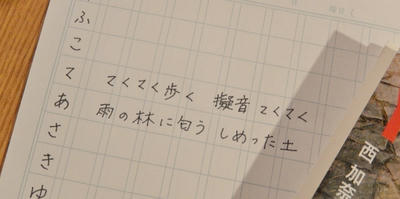 ふ
こ
て てくてく歩く 擬音 てくてく
あ 雨の林に匂う しめった土
さ
き
ゆ
西加奈